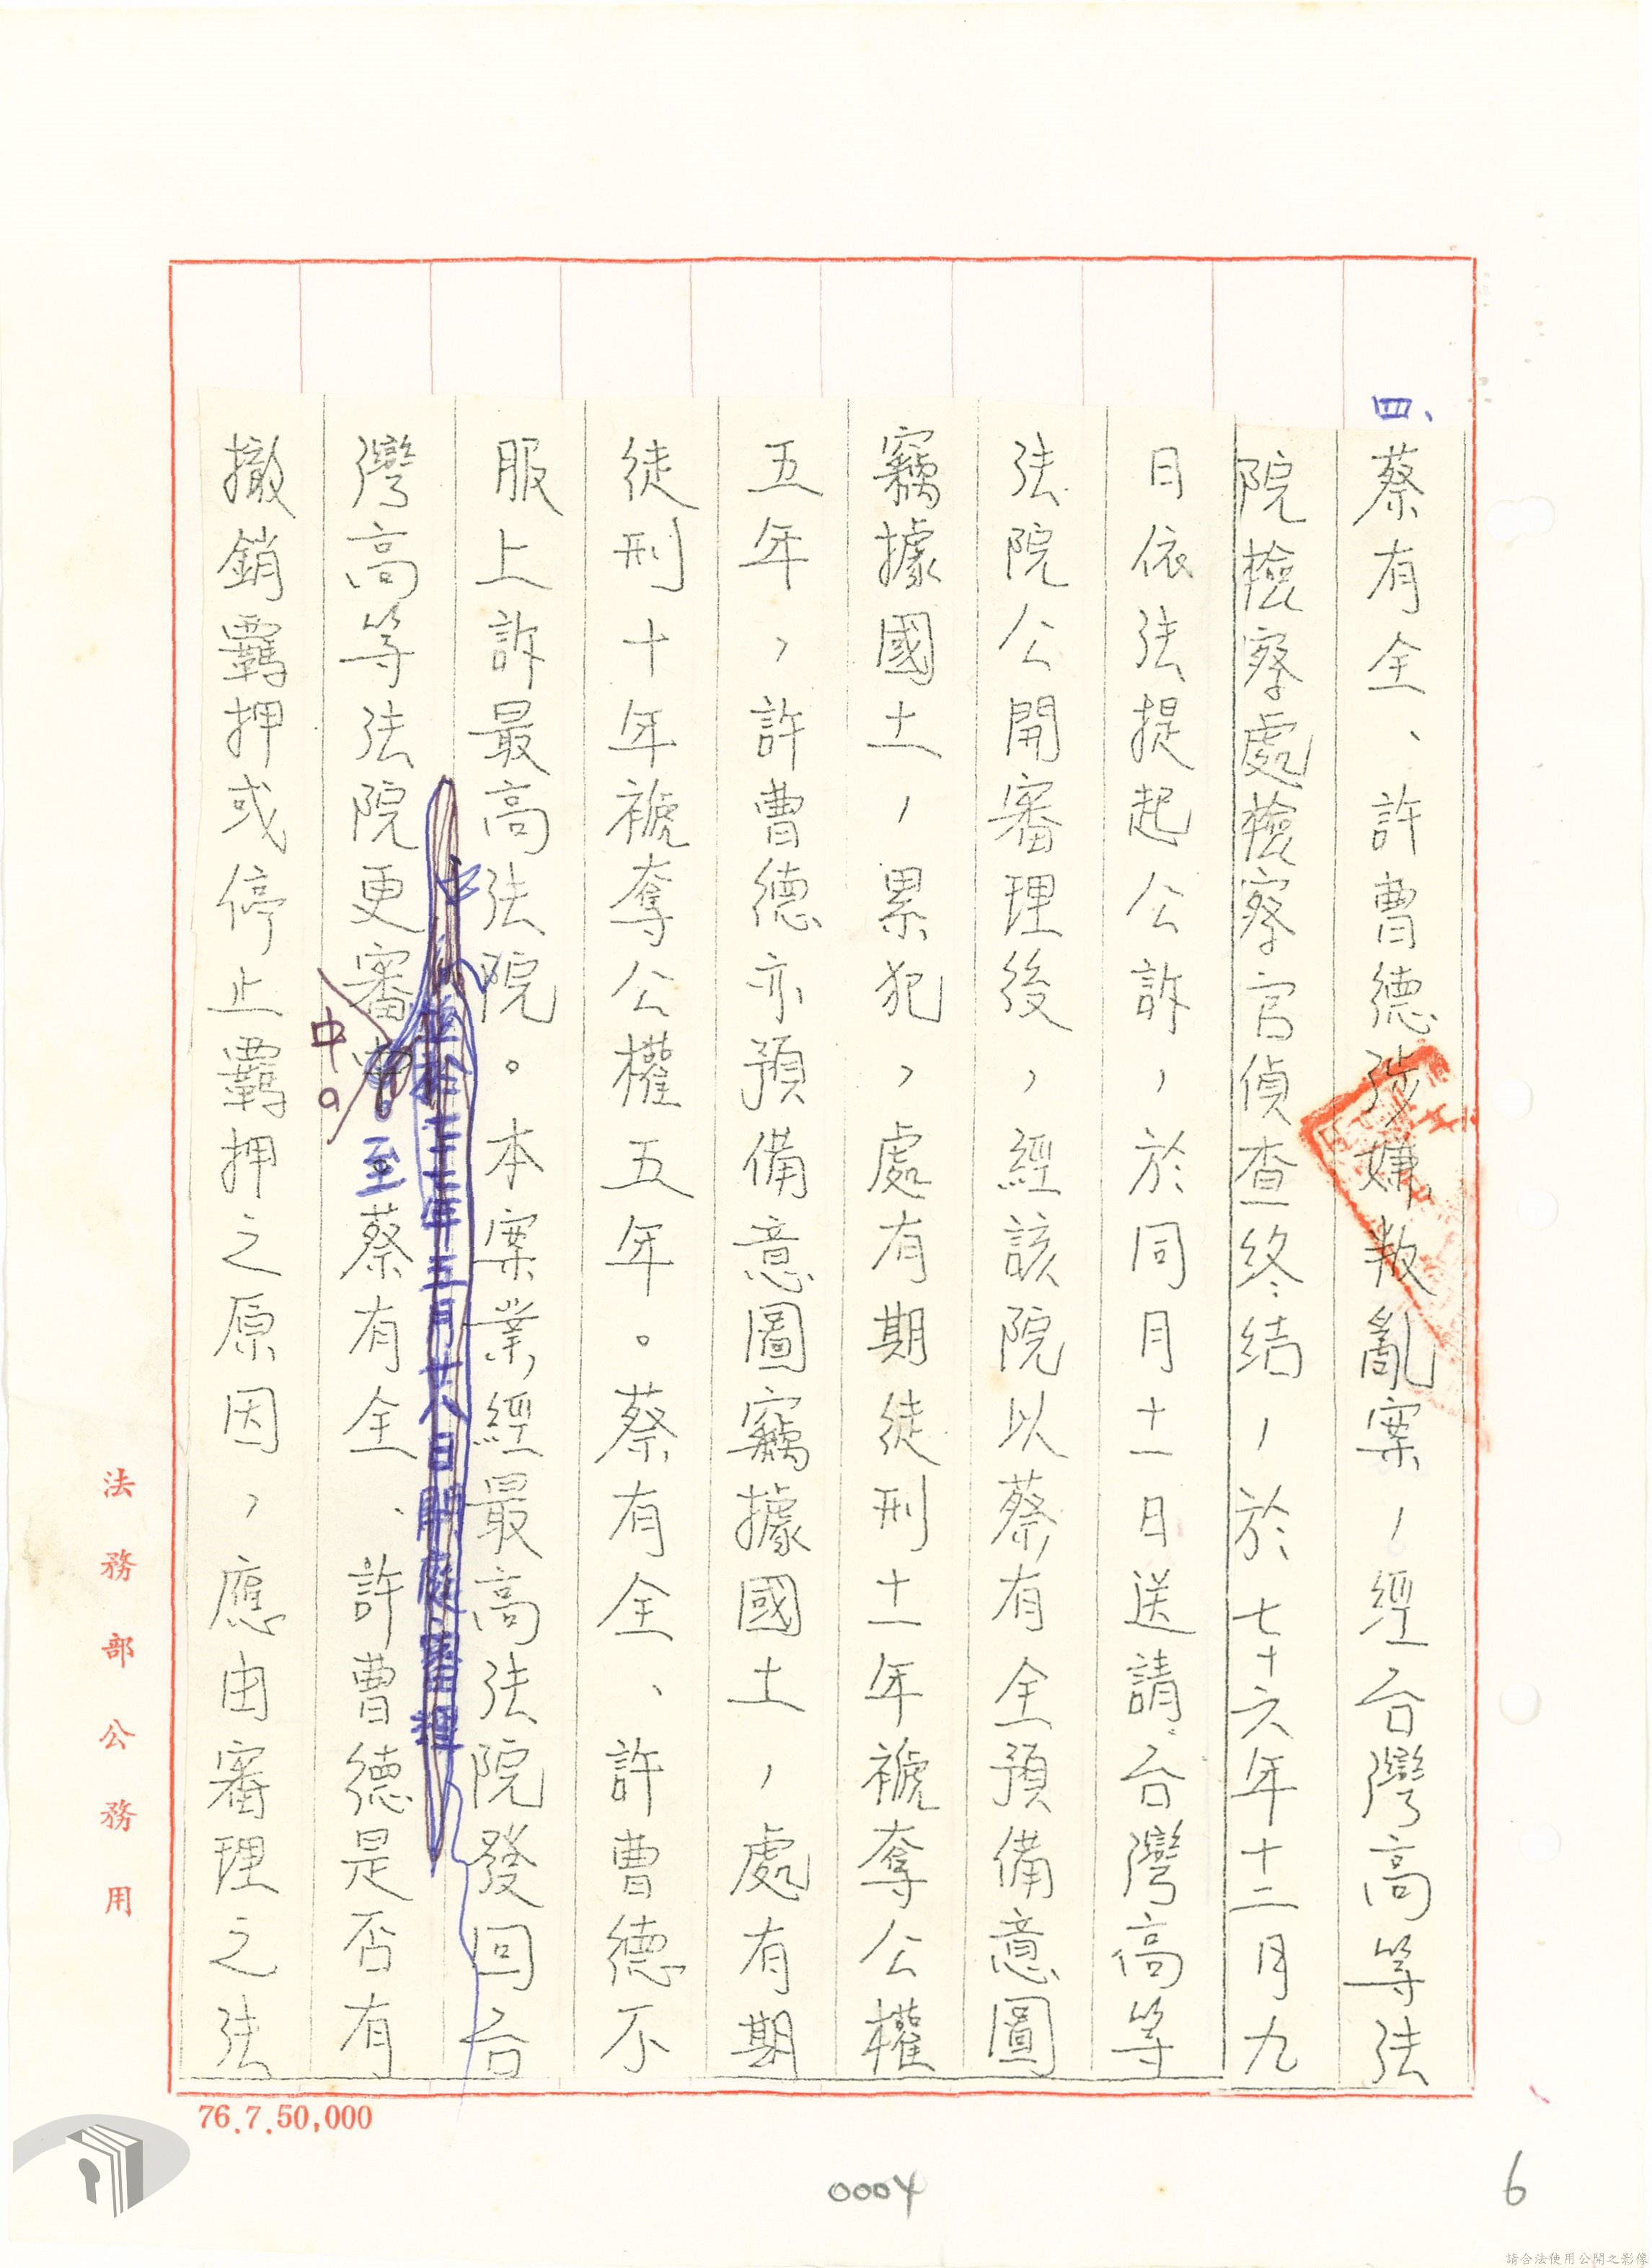 四、蔡有全、許曹德涉嫌叛亂案，經台灣高等法
院檢察處檢察官偵查終結，於七十六年十二月九
日依法提起公訴，於同月十一日送請台灣高等
法院公開審理後，經該院以蔡有全預備意圖
竊據國土，累犯，處有期徒刑十一年褫奪公權
五年，許曹德亦預備意圖竊據國土，處有期
徒刑十年褫奪公權五年。蔡有全、許曹德不
服上訴最高法院。本案業經最高法院發回台
年五月廿八日開庭審理
灣高等法院更審中。至蔡有全、許曹德是否有
中。
撤銷羈押或停止羈押之原因，應由審理之法
法務部公務用
76.7.50,000
0004
6
請合法使用公開之影像